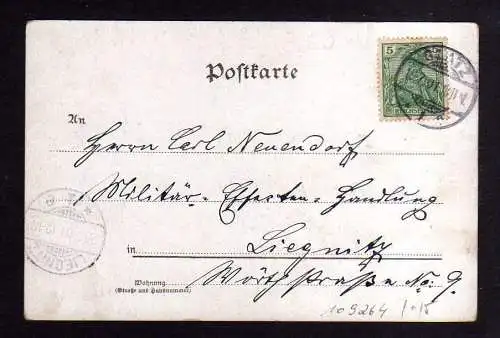 Postkarte
5
GLATZ
An
Herrn Carl Neuendorf
Militär-Effecten-Handlung
in Liegnitz
LIEGNITZ
Wohnung
(Straße und Hausnummer)
Wörthstraße No. 9.
109264